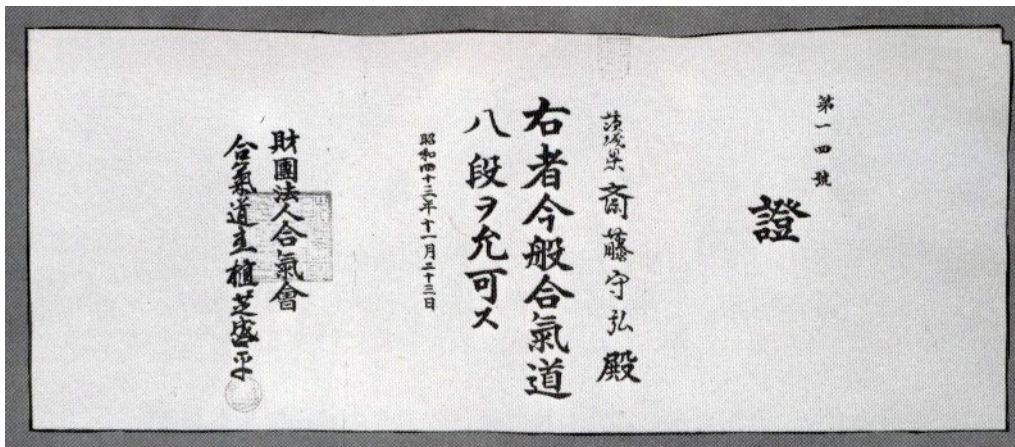 第一四號
證
茨城県 斎藤守弘殿
右者今般合氣道
八段ヲ允可ス
昭和四十三年十一月二十三日
財團法人合氣會
合氣道主植芝盛平